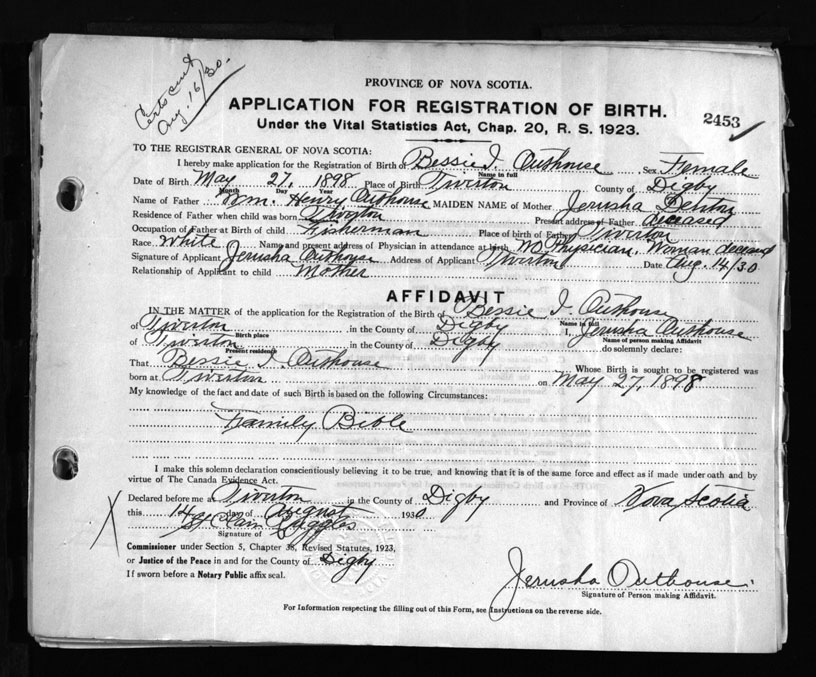 Certs sent
Aug. 16/30.
PROVINCE OF NOVA SCOTIA.
APPLICATION FOR REGISTRATION OF BIRTH.
2453
Under the Vital Statistics Act, Chap. 20, R. S. 1923.
TO THE REGISTRAR GENERAL OF NOVA SCOTIA:
I hereby make application for the Registration of Birth of Bessie I. Outhouse Sex Female
Name in full
Date of Birth May 27, 1898 Place of Birth Tiverton County of Digby
Month Day Year
Name of Father Wm. Henry Outhouse MAIDEN NAME of Mother Jerusha Denton
Residence of Father when child was born Tiverton Present address of Father Deceased
Occupation of Father at Birth of child Fisherman Place of birth of Father Tiverton
Race White Name and present address of Physician in attendance at birth No Physician. Woman deceased
Signature of Applicant Jerusha Outhouse Address of Applicant Tiverton Date Aug. 14/30
Relationship of Applicant to child Mother
AFFIDAVIT
IN THE MATTER of the application for the Registration of the Birth of Bessie I. Outhouse
Name in full
of Tiverton in the County of Digby I, Jerusha Outhouse
Birth place Name of person making Affidavit
of Tiverton in the County of Digby do solemnly declare:
Present residence
That Bessie I. Outhouse Whose Birth is sought to be registered was
born at Tiverton on May 27, 1898
My knowledge of the fact and date of such Birth is based on the following Circumstances:
Family Bible
I make this solemn declaration conscientiously believing it to be true, and knowing that it is of the same force and effect as if made under oath and by
virtue of The Canada Evidence Act.
Declared before me at Tiverton in the County of Digby and Province of Nova Scotia
this 14 day of August 1930
St Clair Ruggles
Signature of
Commissioner under Section 5, Chapter 38, Revised Statutes, 1923,
or Justice of the Peace in and for the County of Digby
If sworn before a Notary Public affix seal.
Jerusha Outhouse
Signature of Person making Affidavit.
For Information respecting the filling out of this Form, see Instructions on the reverse side.